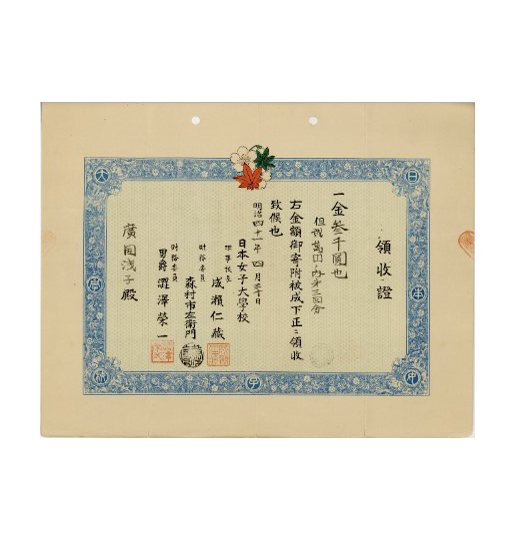 領收證
一金叁千圓也
但貳萬円ノ内第三回分
右金額御寄附被成下正ニ領收
致候也
明治四十一年四月三十日
日本女子大學校
成瀬仁藏
財務委員
森村市左衛門
財務委員
男爵 澀澤榮一
廣岡浅子殿
日
本
子
大